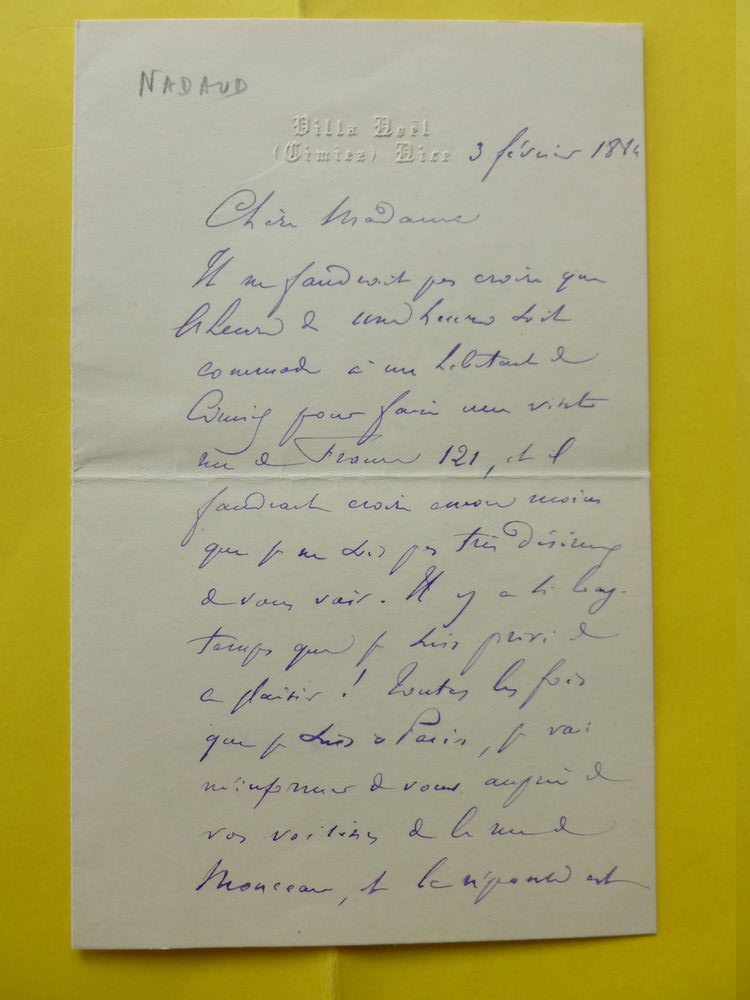 NADAUD
Villa Noël
(Cimiez) Nice 3 février 1884
Chère Madame
Il ne faudrait pas croire que
l'heure de une heure soit
commode à un habitant de
Cimiez pour faire une visite
rue de France 121, et il
faudrait croire encore moins
que je ne sois pas très désireux
de vous voir. Il y a si long-
temps que je suis privé de
ce plaisir ! Toutes les fois
que je suis à Paris, je vais
m'informer de vous auprès de
vos voisines de la rue de
Monceau, et la réponse est